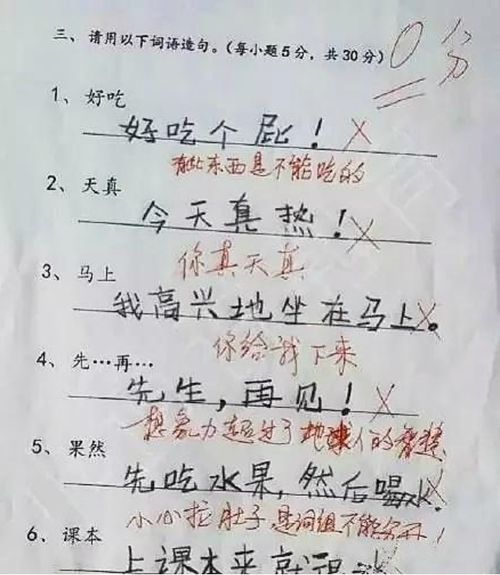 三、请用以下词语造句。(每小题5分，共30分) 0分
1、好吃
好吃个屁！
有些东西是不能吃的
2、天真
今天真热！
你真天真
3、马上
我高兴地坐在马上。
你给我下来
4、先…再…
先生，再见！
想象力超过了地球人的智慧
5、果然
先吃水果，然后喝水.
小心拉肚子是词组不能分开！
6、课本
上课本来就很